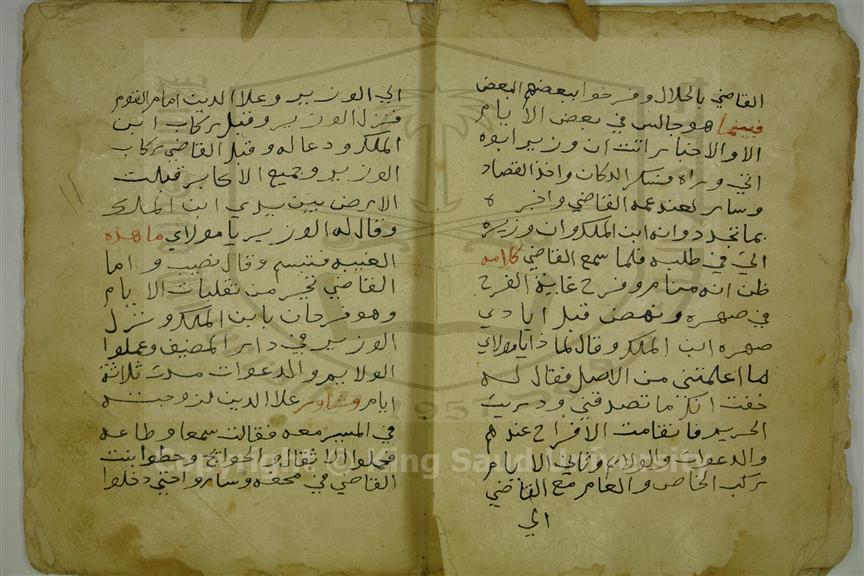 القاضي بالحلال وفرحوا ببعضهم البعض
فبينما هو جالس في بعض الايام
الا والاخبار اتت ان وزير ابوه
اتي وراه فسكر الدكان واخد القصاد
وسار لعند عمه القاضي واخبره
بما تجدد وانه ابن الملك وان وزيره
اليَ في طلبه فلما سمع القاضي كلامه
ظن انه منام وفرح غاية الفرح
في صهره ونهض قبل ايادي
صهره ابن الملك وقال لماذا يا مولاي
ما اعلمتني من الاصل فقال له
خفت انك ما تصدقني ودريت
الحريم فانقامت الافراح عندهم
والدعوات والولايم وتاني الايام
ركب الخاص والعام مع القاضي
الي
الي الوزير وعلا الدين امام القوم
فنزل الوزير وقبل ركاب ابن
الملك ودعا له وقبل القاضي ركاب
الوزير وجميع الاكابر قبلت
الارض بين يدي ابن الملك
وقال له الوزير يا مولاي ما هذه
الغيبه فتبسم وقال نصيب واما
القاضي تحير من تقلبات الايام
وهو فرحان بابن الملك ونزل
الوزير في داير المضيف وعملوا
الولايم والدعوات مدت ثلاثة
ايام وشاور علا الدين لزوجته
في المسير معه فقالت سمعا وطاعه
فحملوا الاثقال والحوايج وحطوا بنت
القاضي في محفه وساروا حتي دخلوا
Copyright © King Saud University
1957